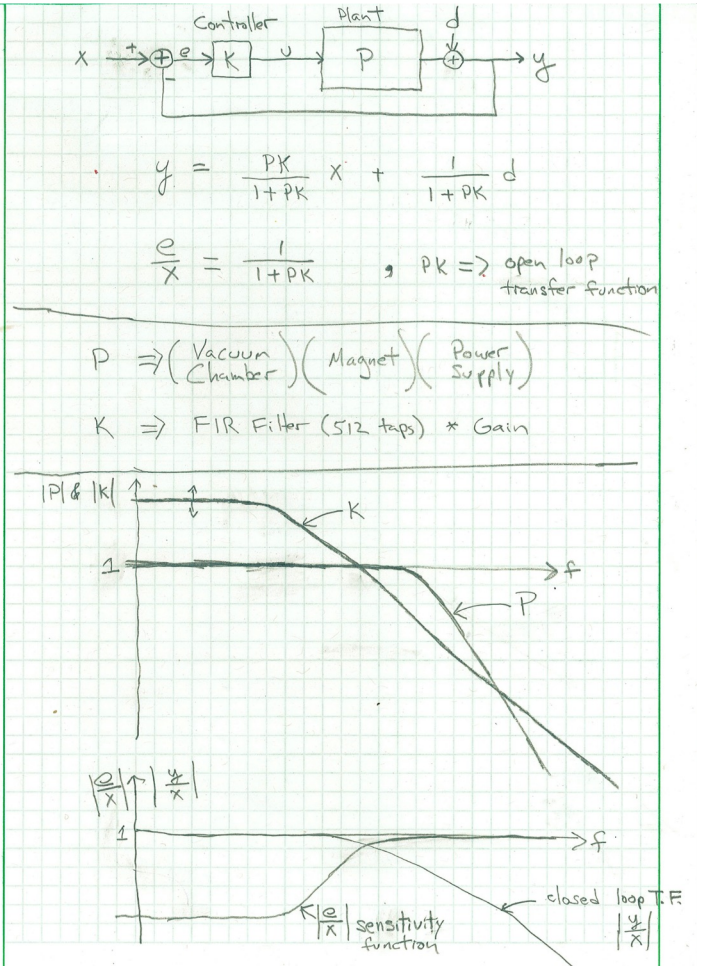 Controller
Plant
d
x + + e K u P + y
−
y = PK / 1 + PK x + 1 / 1 + PK d
e / x = 1 / 1 + PK , PK => open loop
transfer function
P => (Vacuum Chamber) (Magnet) (Power Supply)
K => FIR Filter (512 taps) * Gain
|P| & |K|
K
1
f
P
|e/x| |y/x|
1
f
closed loop T.F.
|y/x|
|e/x| sensitivity
function